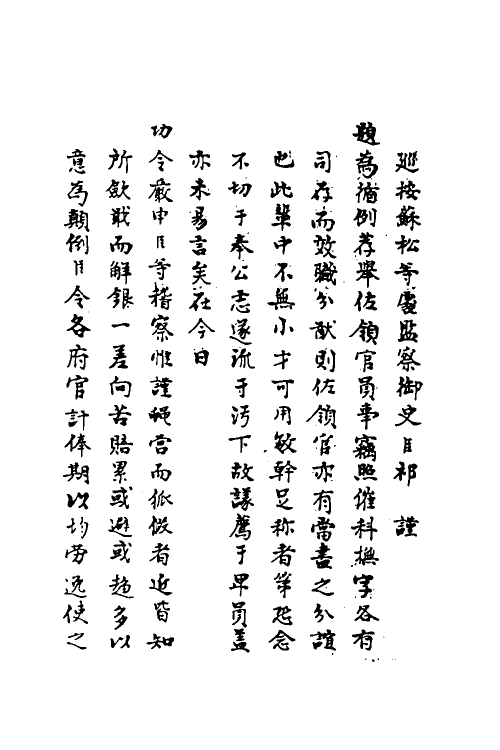 巡按蘇松等處監察御史臣祁　謹
題為循例荐舉佐領官員事竊照催科撫字各有
司存而效職分猷則佐領官亦有當盡之分誼
也此輩中不無小才可用敏幹足称者第恐念
不切于奉公志遂流于污下故議薦于卑員蓋
亦未易言矣在今日
功令嚴申臣等稽察惟謹蠅營而狐假者近皆知
所歛戢而解銀一差向苦賠累或避或趋多以
意為顛倒臣令各府官計俸期以均劳逸使之